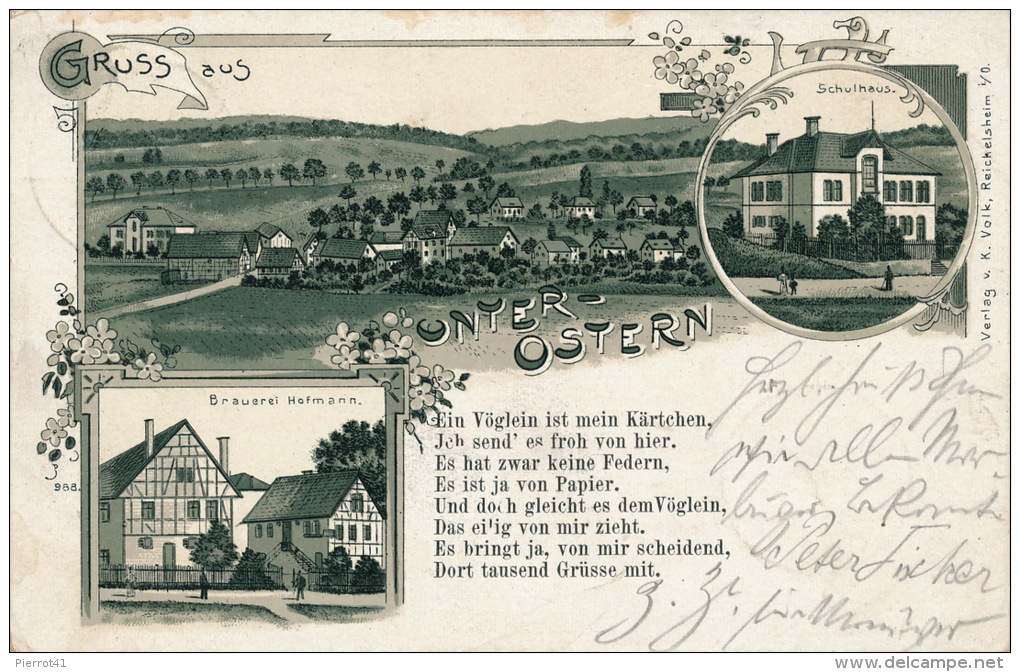 GRUSS aus
Schulhaus.
Verlag v. K. Volk, Reichelsheim i/O.
UNTER-
OSTERN
Brauerei Hofmann.
988.
Ein Vöglein ist mein Kärtchen,
Ich send' es froh von hier.
Es hat zwar keine Federn,
Es ist ja von Papier.
Und doch gleicht es dem Vöglein,
Das eilig von mir zieht.
Es bringt ja, von mir scheidend,
Dort tausend Grüsse mit.
Peter
z. Zt.
Pierrot41
delcampe.net